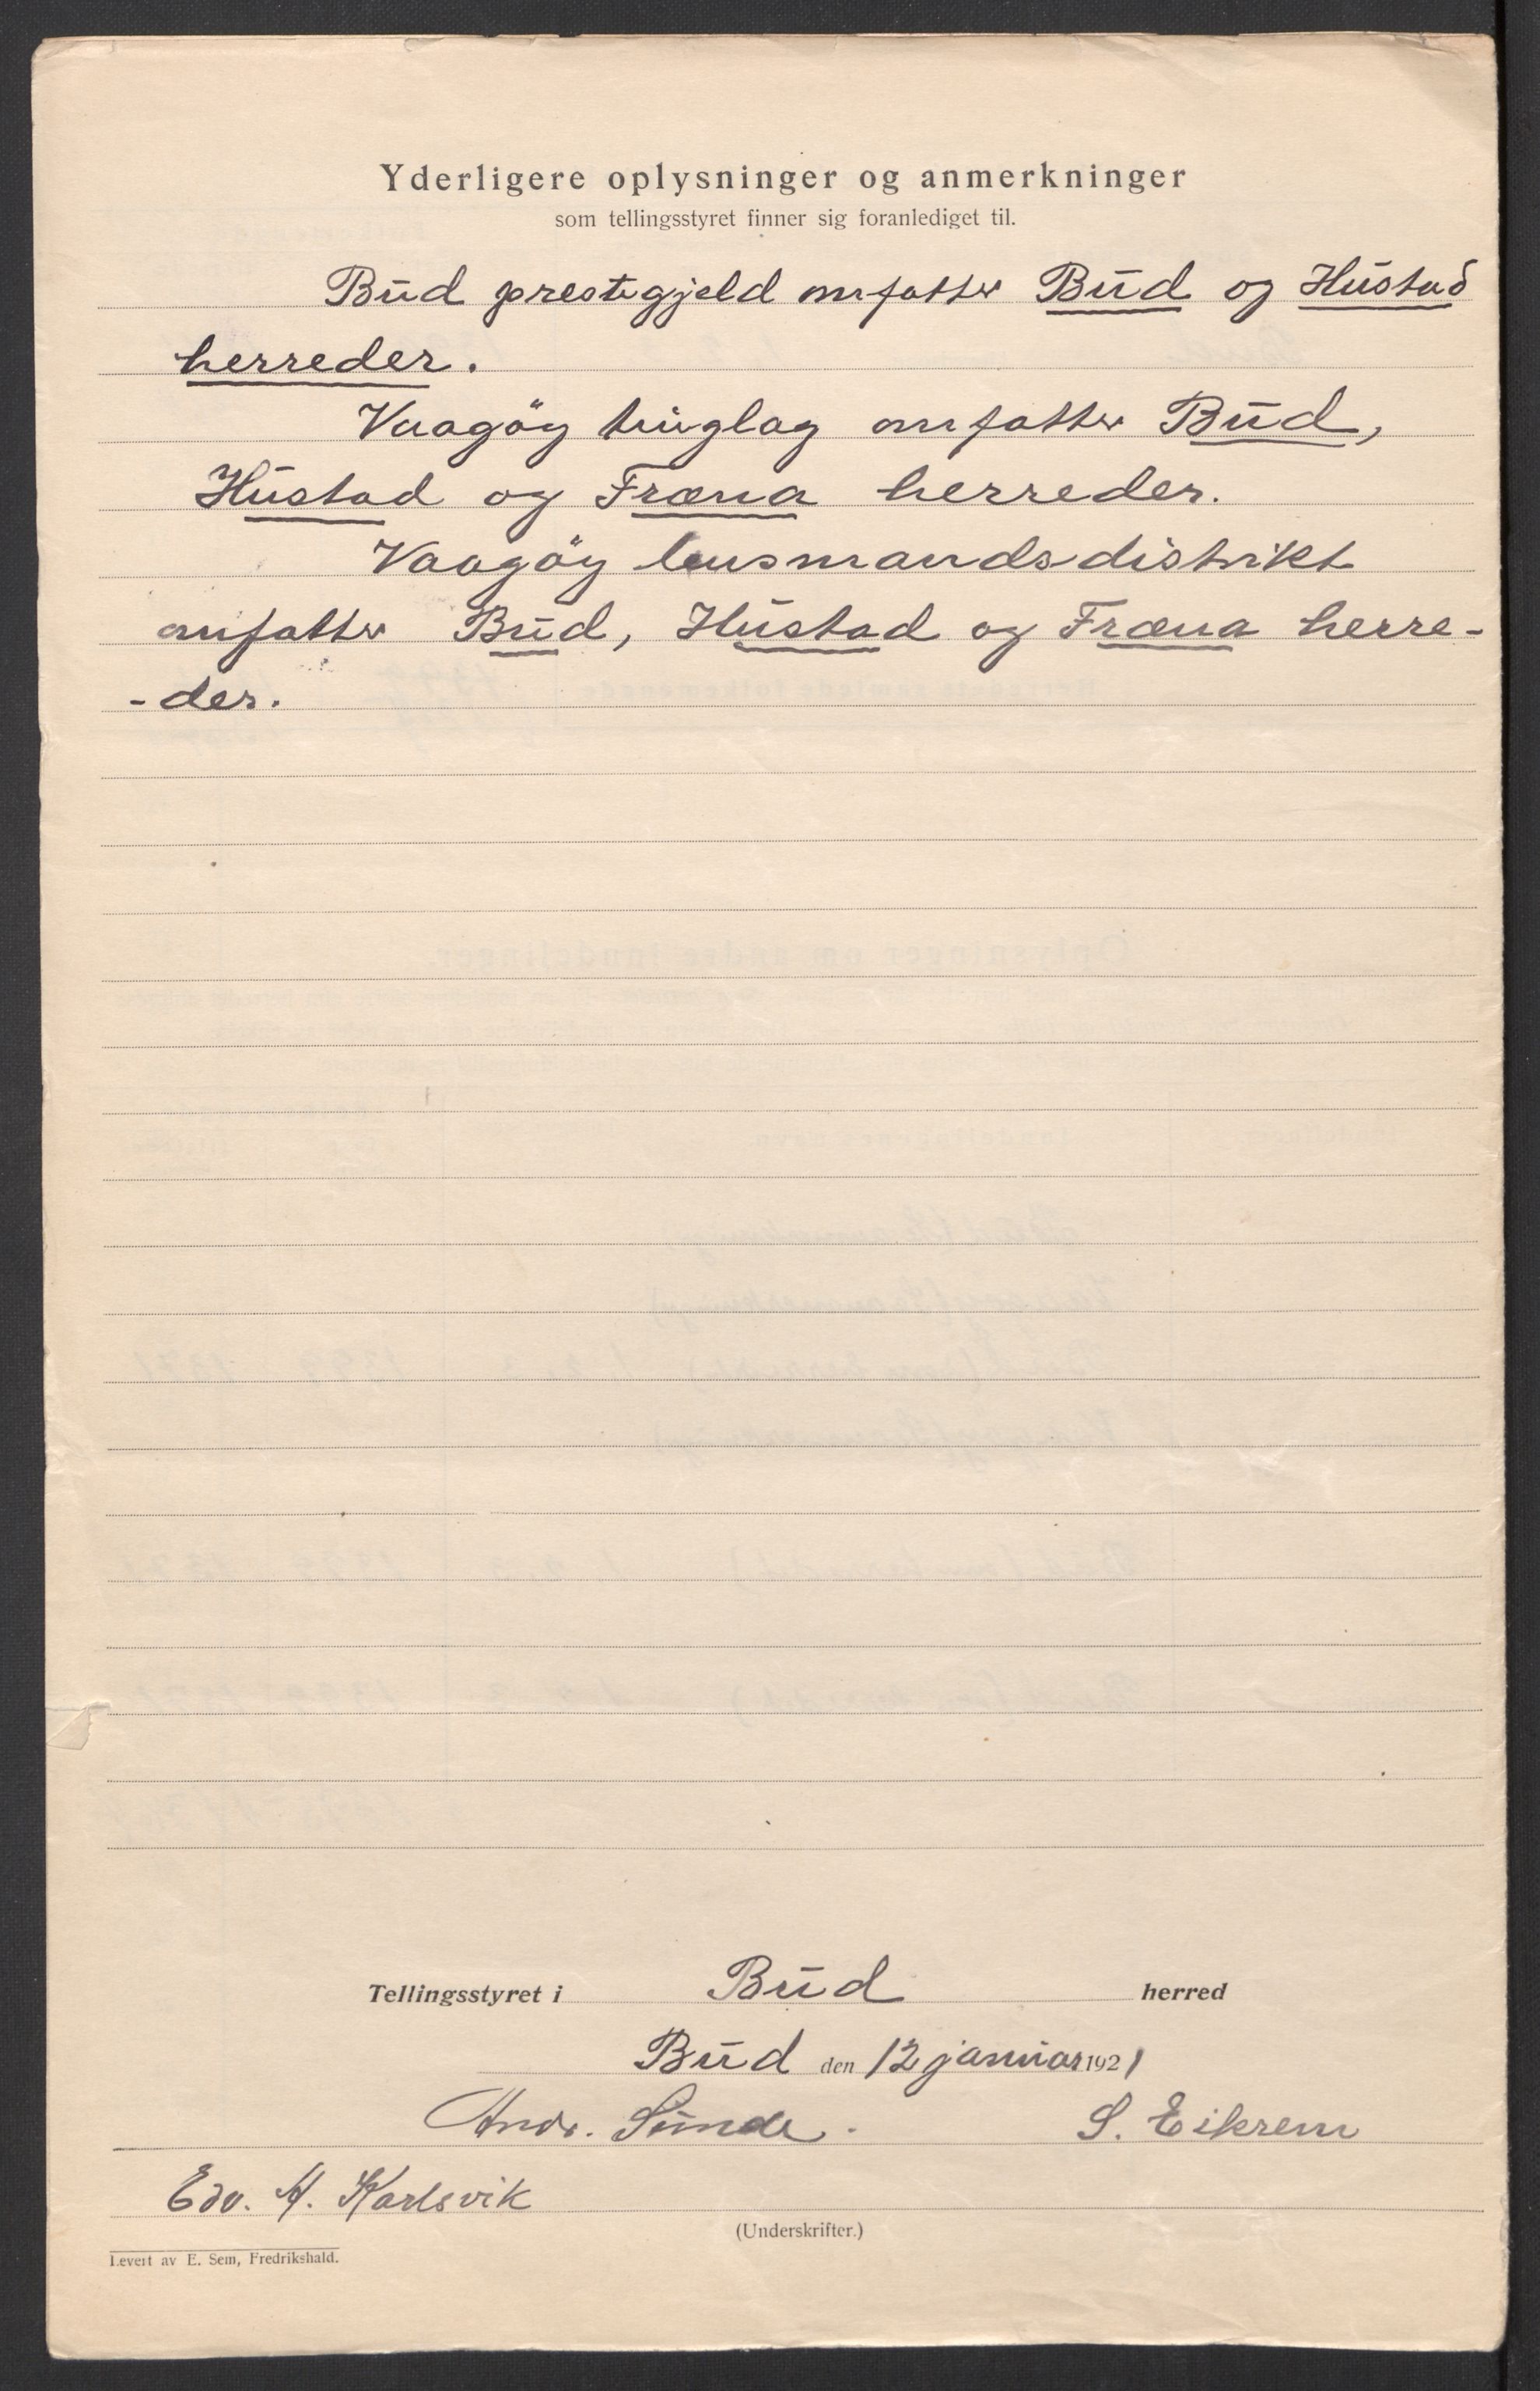 Yderligere oplysninger og anmerkninger
som tellingsstyret finner sig foranlediget til.
Bud prestegjeld omfatter Bud og Hustad
herreder.
Vaagöy tinglag omfatter Bud,
Hustad og Fræna herreder.
Vaagöy lensmandsdistrikt
omfatter Bud, Hustad og Fræna herre-
-der.
Tellingsstyret i Bud herred
Bud den 12 januar 1921
Andr. Sunde. S. Eikrem
Edv. M. Karlsvik
(Underskrifter.)
Levert av E. Sem, Fredrikshald.